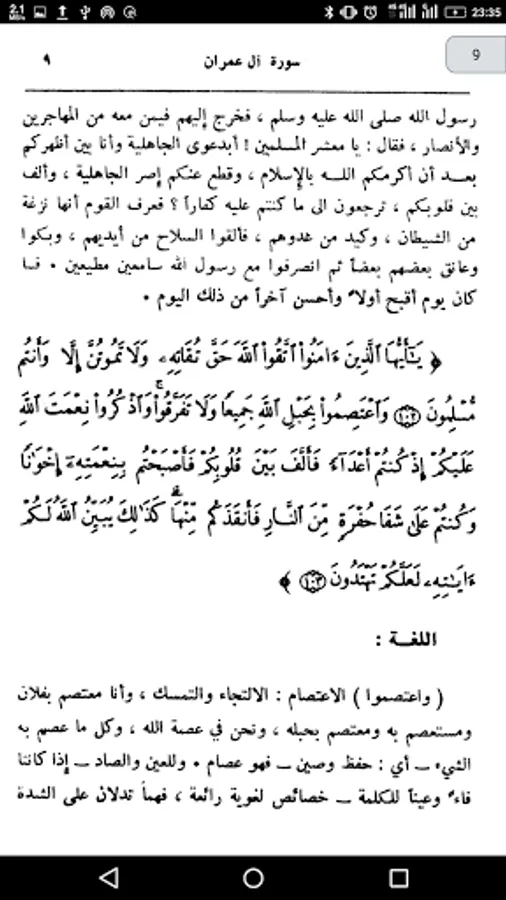 2.1
MB/s
23:35
9
سورة آل عمران
٩
رسول الله صلى الله عليه وسلم ، فخرج إليهم فيمن معه من المهاجرين
والأنصار ، فقال : يا معشر المسلمين ! أبدعوى الجاهلية وأنا بين أظهركم
بعد أن أكرمكم الله بالإسلام ، وقطع عنكم إصر الجاهلية ، وألف
بين قلوبكم ، ترجعون الى ما كنتم عليه كفاراً ؟ فعرف القوم أنها نزغة
من الشيطان ، وكيد من عدوهم ، فألقوا السلاح من أيديهم ، وبكوا
وعانق بعضهم بعضاً ثم انصرفوا مع رسول الله سامعين مطيعين ٠ فما
كان يوم أقبح أولا ً وأحسن آخراً من ذلك اليوم ٠
﴿ يَٰٓأَيُّهَا ٱلَّذِينَ ءَامَنُوا۟ ٱتَّقُوا۟ ٱللَّهَ حَقَّ تُقَاتِهِۦ وَلَا تَمُوتُنَّ إِلَّا وَأَنتُم
مُّسْلِمُونَ ١٠٢ وَٱعْتَصِمُوا۟ بِحَبْلِ ٱللَّهِ جَمِيعًا وَلَا تَفَرَّقُوا۟ ۚ وَٱذْكُرُوا۟ نِعْمَتَ ٱللَّهِ
عَلَيْكُمْ إِذْ كُنتُمْ أَعْدَآءً فَأَلَّفَ بَيْنَ قُلُوبِكُمْ فَأَصْبَحْتُم بِنِعْمَتِهِۦٓ إِخْوَٰنًا
وَكُنتُمْ عَلَىٰ شَفَا حُفْرَةٍ مِّنَ ٱلنَّارِ فَأَنقَذَكُم مِّنْهَا ۗ كَذَٰلِكَ يُبَيِّنُ ٱللَّهُ لَكُمْ
ءَايَٰتِهِۦ لَعَلَّكُمْ تَهْتَدُونَ ١٠٣ ﴾
اللغة :
( واعتصموا ) الاعتصام : الالتجاء والتمسك ، وأنا معتصم بفلان
ومستعصم به ومعتصم بحبله ، ونحن في عصمة الله ، وكل ما عصم به
الشيء ــ أي : حفظ وصين ــ فهو عصام ٠ وللعين والصاد ــ إذا كانتا
فاء ً وعيناً للكلمة ــ خصائص لغوية رائعة ، فهما تدلان على الشدة